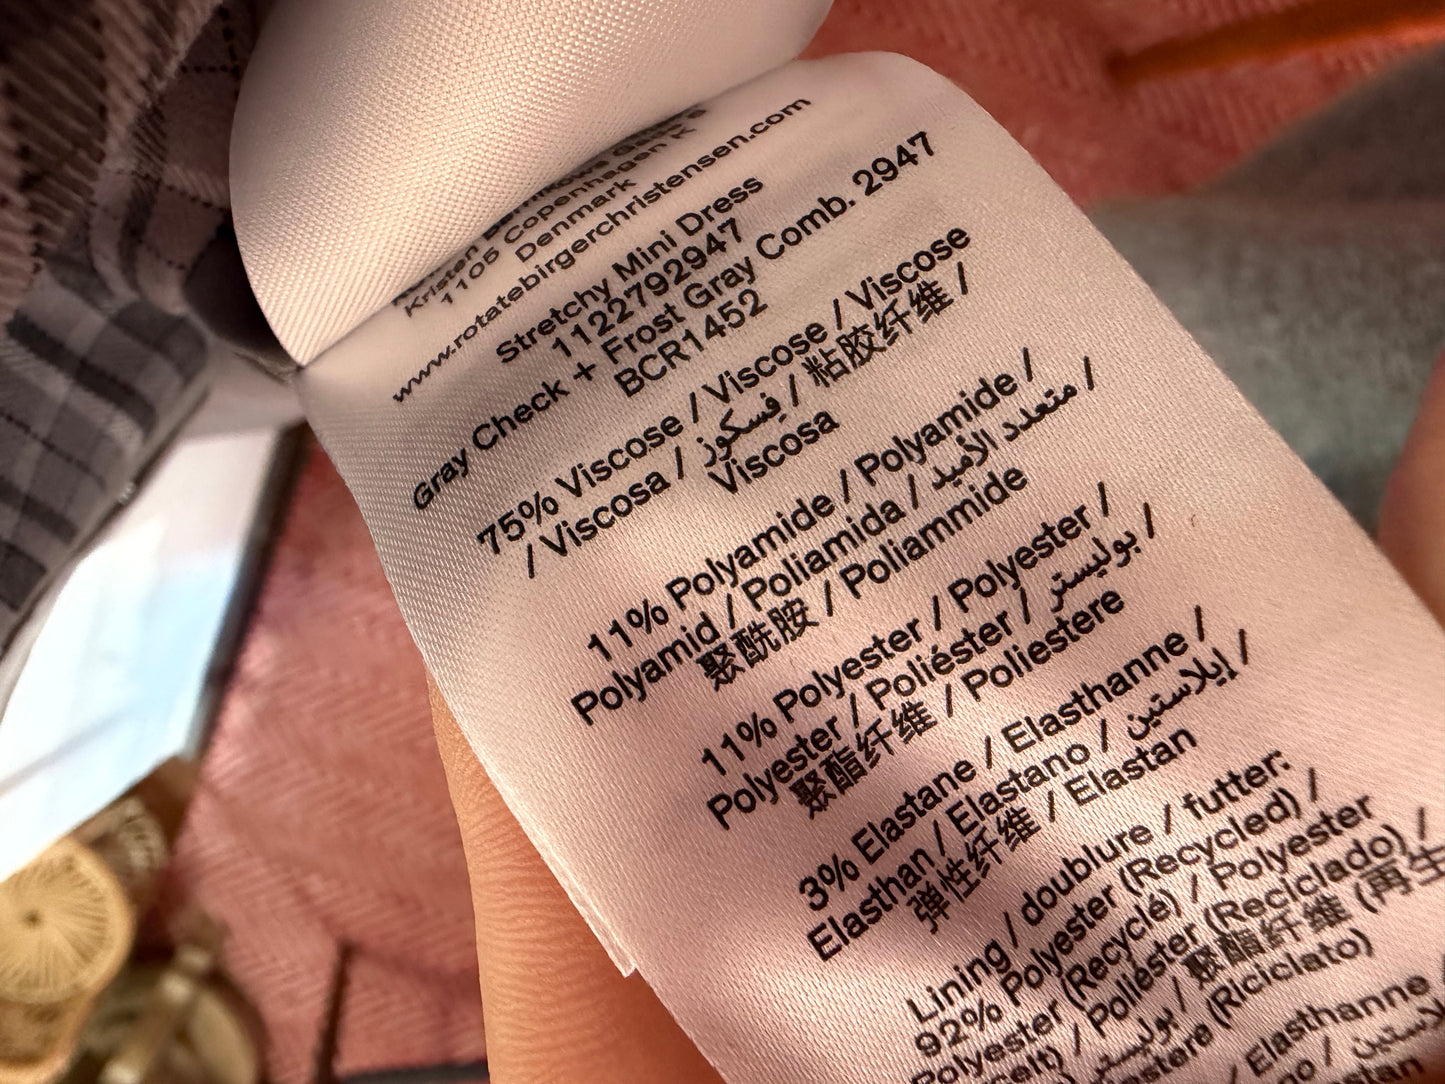 Kristen
1105 Copenhagen K
Denmark
www.rotatebirgerchristensen.com
Stretchy Mini Dress
1122792947
Gray Check + Frost Gray Comb. 2947
BCR1452
75% Viscose / Viscose / Viscose
/ Viscosa / فيسكوز / 粘胶纤维 /
Viscosa
11% Polyamide / Polyamide /
Polyamid / Poliamida / متعدد الأميد /
聚酰胺 / Poliammide
11% Polyester / Polyester /
Polyester / Poliéster / بوليستر /
聚酯纤维 / Poliestere
3% Elastane / Elasthanne /
Elasthan / Elastano / إيلاستين /
弹性纤维 / Elastan
Lining / doublure / futter:
92% Polyester (Recycled) /
Polyester (Recyclé) / Polyester
/ Poliéster (Reciclado) /
بوليستر / 聚酯纤维 (再生
(Riciclato)
/ Elasthanne